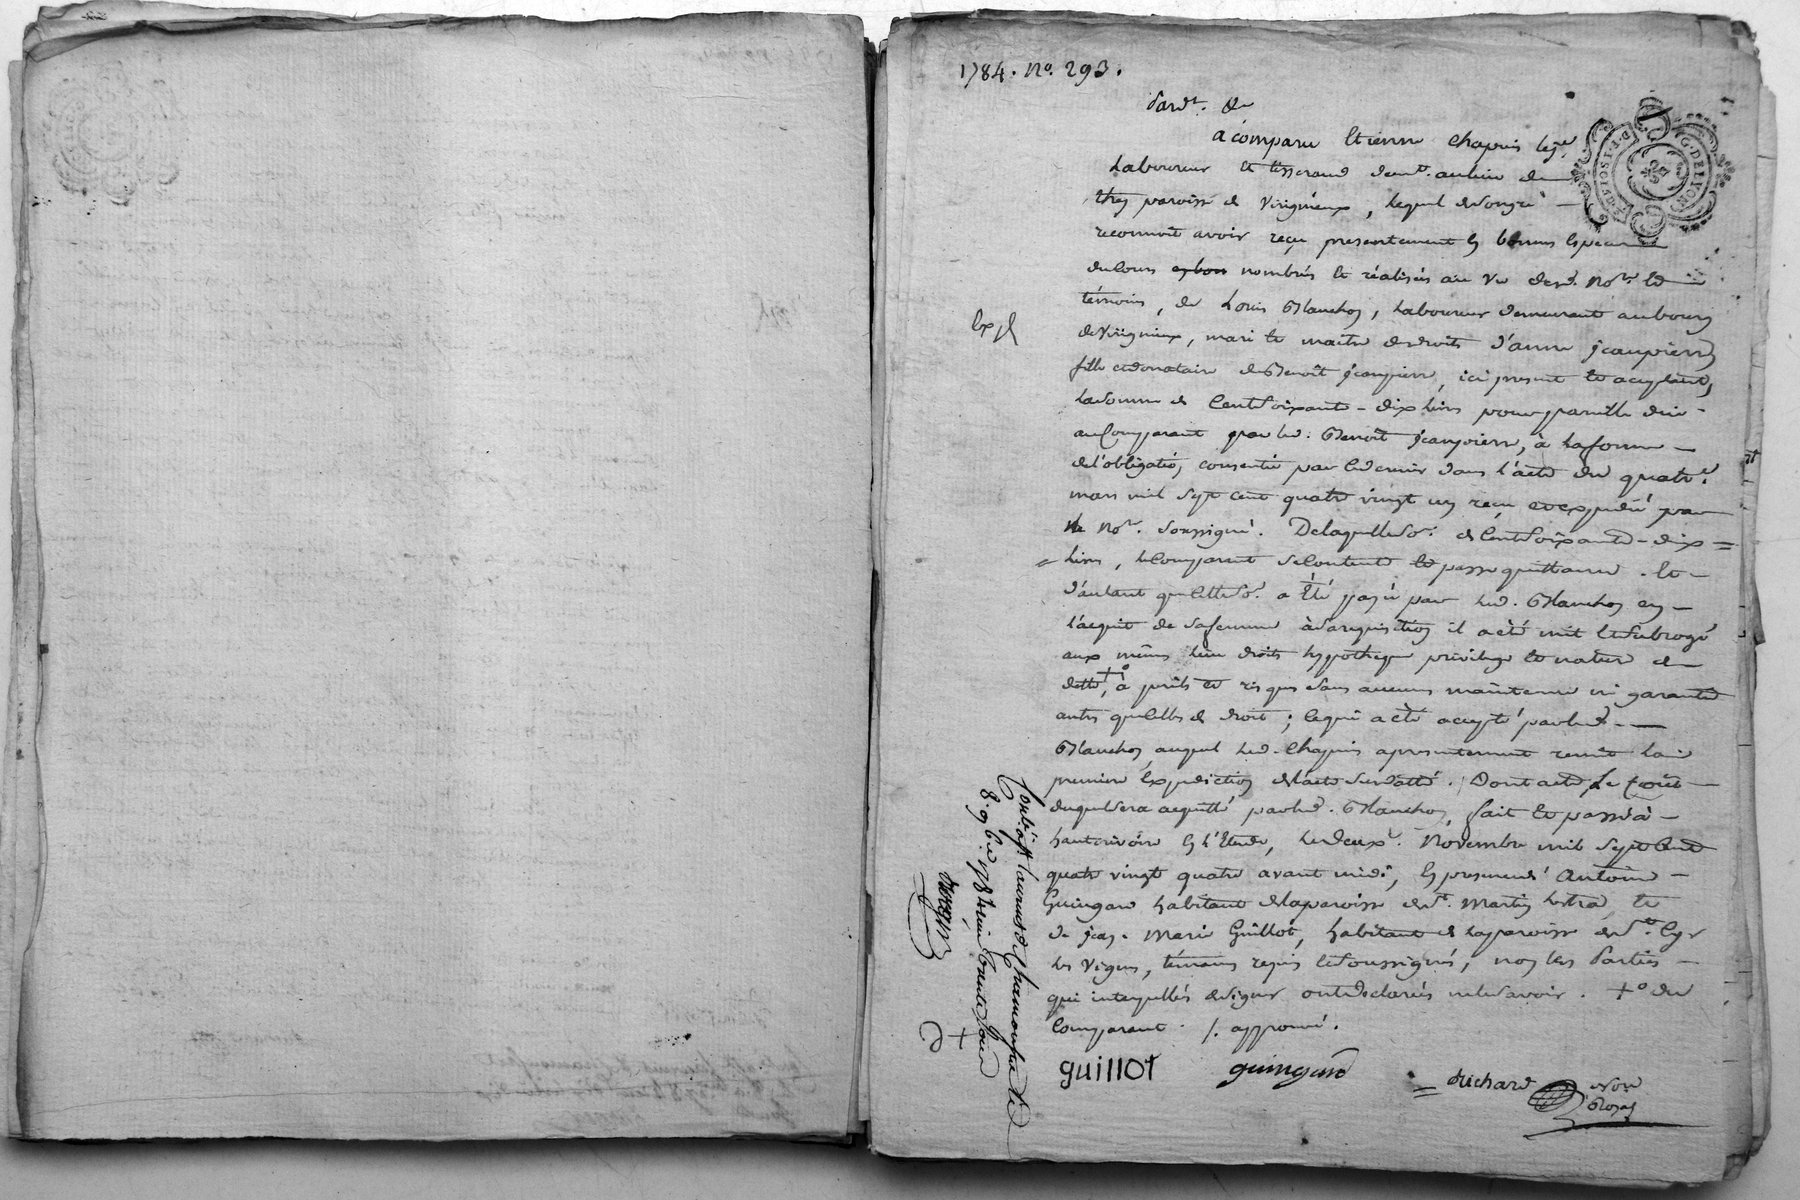 1784. No. 293.
Pard.t &
a comparu Etienne Chapuis
Laboureur et tisserand dem.t au lieu de
paroisse de Virigneux, lequel de son gré
reconnoit avoir reçu presentement en bonnes especes
du cours nombrés et réalisés au vu desd. No.re et
témoins, de Louis Blanchon, Laboureur demeurant au bourg
de Virigneux, mari et maitre des droits d'anne jeanpierre
fille et donataire de Benoît jeanpierre, ici present et acceptant,
la somme de Cent soixante-dix livres pour pareille due
au Comparant par led. Benoit jeanpierre, à la forme
de l'obligation consentie par ce dernier dans l'acte du quatre
mars mil sept cent quatre vingt un reçu et expedié par
le No.re soussigné. De laquelle so.e de Cent soixante-dix =
= livres, le Comparant se contente et passe quittance. Et
d'autant que cette so.e a Eté payée par led. Blanchon en
l'acquit de sa femme à sa requisition il a eté mit et subrogé
aux mêmes lieu droits hypotheque privilege et nature de
dette, +o à perils et risques sans aucune maintenue ni garantie
autre que celle de droit; ce qui a eté accepté par led.
Blanchon auquel led. Chapuis a presentement remit la
premiere Expedition de l'acte sus datté. Dont acte, Le coût
duquel sera acquitté par led. Blanchon, fait et passé à
hauterivoire en l'Etude, le deux.e Novembre mil sept Cent
quatre vingt quatre avant midi, en presence d'Antoine
Guingard habitant de la paroisse de St. Martin Lestra et
de jean-Marie Guillot, habitant de la paroisse de St. Cyr
les Vignes, témoins requis et soussignés, non les Parties
qui interpellés de signer ont declarés ne le savoir. +o du
Comparant. /. approuvé.
guillot guingard Brichard No.re Royal
Exp.
Cont.lé à St. Laurent de Chamousset le
8. 9bre 1784 reçu trente sous